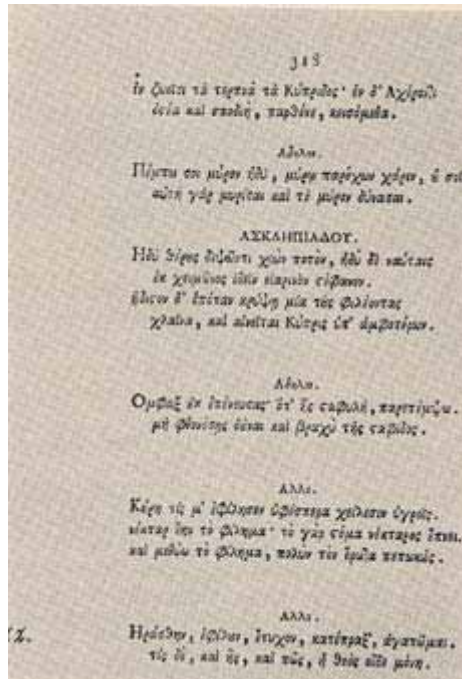 318
ἐν ζωοῖσι τὰ τερπνὰ τὰ Κύπριδος· ἐν δ' Ἀχέροντι
ὀστέα καὶ σποδιὴ, παρθένε, κεισόμεθα.
Πέμπω σοι μύρον ἡδὺ, μύρῳ παρέχων χάριν, οὐ σοὶ
αὐτὴ γὰρ μυρίσαι καὶ τὸ μύρον δύνασαι.
ΑΣΚΛΗΠΙΑΔΟΥ.
Ηδὺ θέρος διψῶντι χιὼν ποτὸν, ἡδὺ δὲ ναύταις
ἐκ χειμῶνος ἰδεῖν εἰαρινὸν στέφανον.
ἥδιστον δ' ὁπόταν κρύψῃ μία τοὺς φιλέοντας
χλαῖνα, καὶ αἰνεῖται Κύπρις ὑπ' ἀμφοτέρων.
Ομφαξ οὐκ ἐπένευσας· ὅτ' ἦς σταφυλὴ, παρεπέμψω.
μὴ φθονέσῃς δοῦναι καὶ βραχὺ τῆς σταφίδος.
Αλλο.
Κούρη τίς μ' ἐφίλησεν ὑφέσπερα χείλεσιν ὑγροῖς.
νέκταρ ἔην τὸ φίλημα· τὸ γὰρ στόμα νέκταρος ἔπνει.
καὶ μεθύω τὸ φίλημα, πολὺν τὸν ἔρωτα πεπωκώς.
Αλλο.
Ηράσθην, ἐφίλουν, ἔτυχον, κατέπραξ', ἀγαπῶμαι.
τίς δὲ, καὶ ἧς, καὶ πῶς, ἡ θεὸς οἶδε μόνη.